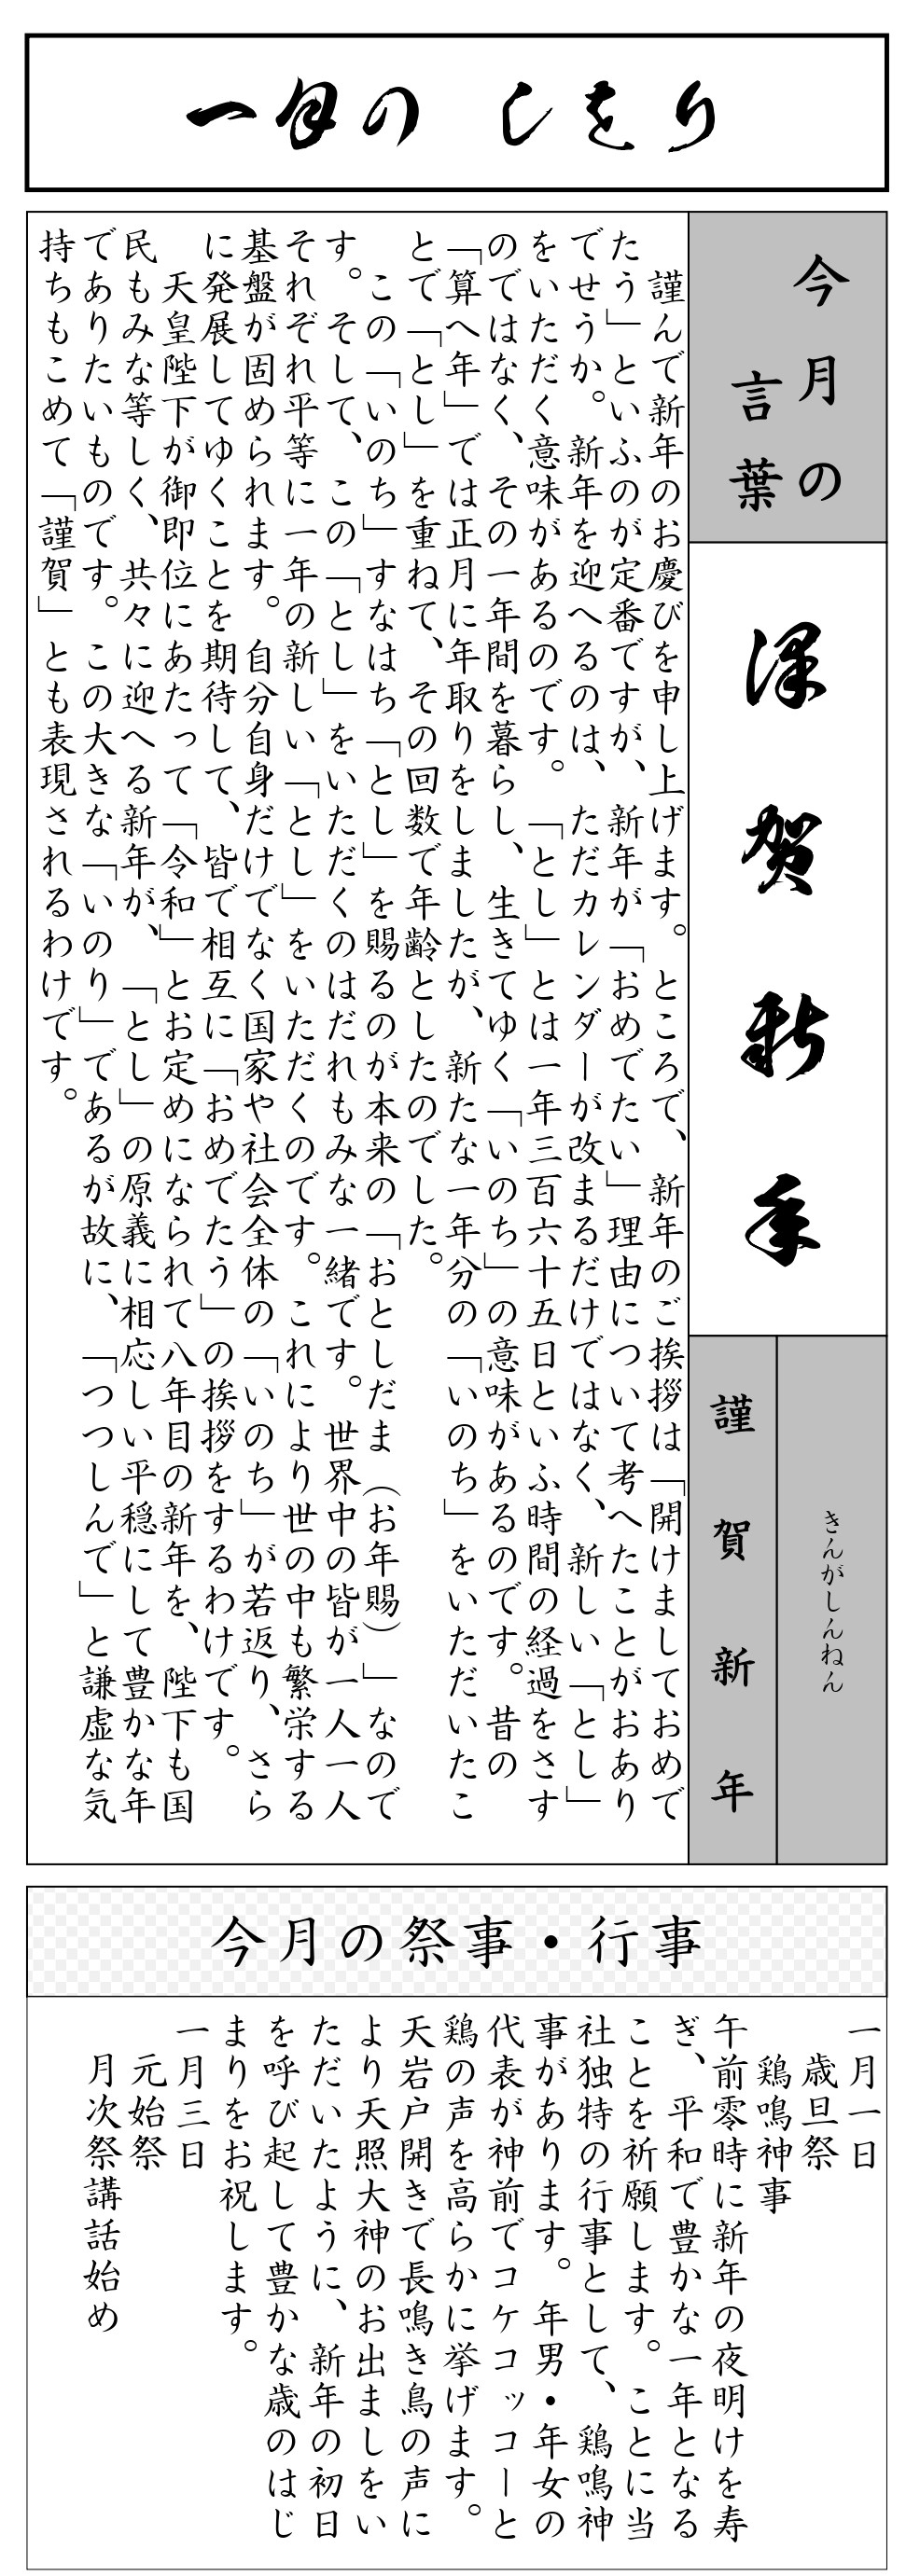 一月の しをり
今月の
言葉
謹賀新年
きんがしんねん
謹賀新年
謹んで新年のお慶びを申し上げます。ところで、新年のご挨拶は「開けましておめで
たう」といふのが定番ですが、新年が「おめでたい」理由について考へたことがおあり
でせうか。新年を迎へるのは、ただカレンダーが改まるだけではなく、新しい「とし」
をいただく意味があるのです。「とし」とは一年三百六十五日といふ時間の経過をさす
のではなく、その一年間を暮らし、生きてゆく「いのち」の意味があるのです。昔の
「算へ年」では正月に年取りをしましたが、新たな一年分の「いのち」をいただいたこ
とで「とし」を重ねて、その回数で年齢としたのでした。
この「いのち」すなはち「とし」を賜るのが本来の「おとしだま（お年賜）」なので
す。そして、この「とし」をいただくのはだれもみな一緒です。世界中の皆が一人一人
それぞれ平等に一年の新しい「とし」をいただくのです。これにより世の中も繁栄する
基盤が固められます。自分自身だけでなく国家や社会全体の「いのち」が若返り、さら
に発展してゆくことを期待して、皆で相互に「おめでたう」の挨拶をするわけです。
天皇陛下が御即位にあたって「令和」とお定めになられて八年目の新年を、陛下も国
民もみな等しく、共々に迎へる新年が、「とし」の原義に相応しい平穏にして豊かな年
でありたいものです。この大きな「いのり」であるが故に、「つつしんで」と謙虚な気
持ちもこめて「謹賀」とも表現されるわけです。
今月の祭事・行事
一月一日
歳旦祭
鶏鳴神事
午前零時に新年の夜明けを寿
ぎ、平和で豊かな一年となる
ことを祈願します。ことに当
社独特の行事として、鶏鳴神
事があります。年男・年女の
代表が神前でコケコッコーと
鶏の声を高らかに挙げます。
天岩戸開きで長鳴き鳥の声に
より天照大神のお出ましをい
ただいたように、新年の初日
を呼び起して豊かな歳のはじ
まりをお祝します。
一月三日
元始祭
月次祭講話始め